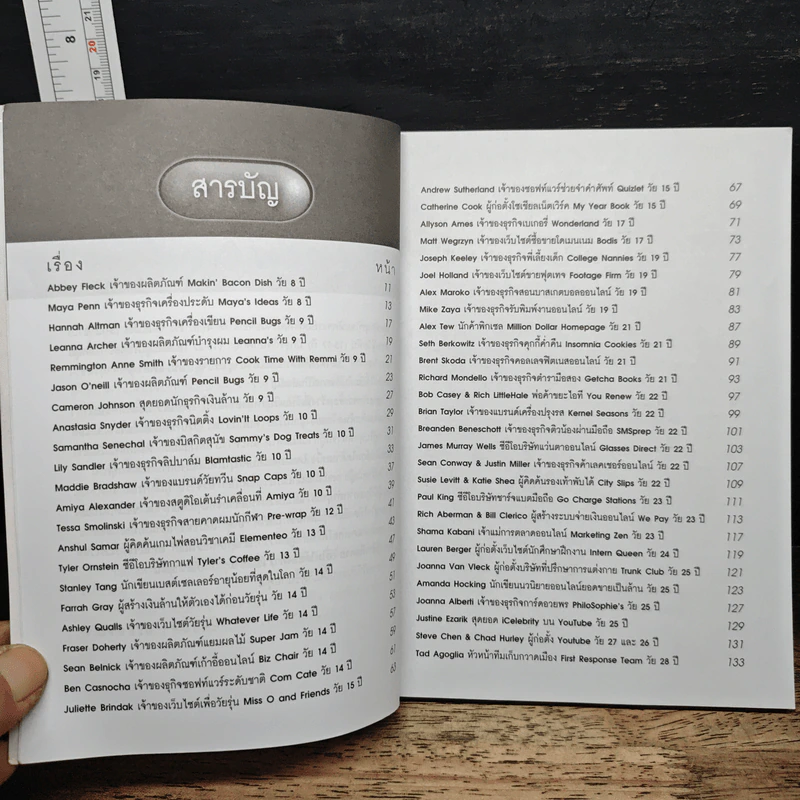 8
21
20
19
สารบัญ
เรื่อง หน้า
Abbey Fleck เจ้าของผลิตภัณฑ์ Makin' Bacon Dish วัย 8 ปี 11
Maya Penn เจ้าของธุรกิจเครื่องประดับ Maya's Ideas วัย 8 ปี 13
Hannah Altman เจ้าของธุรกิจเครื่องเขียน Pencil Bugs วัย 9 ปี 17
Leanna Archer เจ้าของผลิตภัณฑ์บำรุงผม Leanna's วัย 9 ปี 19
Remmington Anne Smith เจ้าของรายการ Cook Time With Remmi วัย 9 ปี 21
Jason O'neill เจ้าของผลิตภัณฑ์ Pencil Bugs วัย 9 ปี 23
Cameron Johnson สุดยอดนักธุรกิจเงินล้าน วัย 9 ปี 27
Anastasia Snyder เจ้าของธุรกิจนิตติ้ง Lovin'It Loops วัย 10 ปี 29
Samantha Senechal เจ้าของบิสกิตสุนัข Sammy's Dog Treats วัย 10 ปี 31
Lily Sandler เจ้าของธุรกิจลิปบาล์ม Blamtastic วัย 10 ปี 33
Maddie Bradshaw เจ้าของแบรนด์วัยทวีน Snap Caps วัย 10 ปี 37
Amiya Alexander เจ้าของสตูดิโอเต้นรำเคลื่อนที่ Amiya วัย 10 ปี 39
Tessa Smolinski เจ้าของธุรกิจสายคาดผมนักกีฬา Pre-wrap วัย 12 ปี 41
Anshul Samar ผู้คิดค้นเกมไพ่สอนวิชาเคมี Elementeo วัย 13 ปี 43
Tyler Ornstein ซีอีโอบริษัทกาแฟ Tyler's Coffee วัย 13 ปี 47
Stanley Tang นักเขียนเบสต์เซลเลอร์อายุน้อยที่สุดในโลก วัย 14 ปี 49
Farrah Gray ผู้สร้างเงินล้านให้ตัวเองได้ก่อนวัยรุ่น วัย 14 ปี 51
Ashley Qualls เจ้าของเว็บไซต์วัยรุ่น Whatever Life วัย 14 ปี 53
Fraser Doherty เจ้าของผลิตภัณฑ์แยมผลไม้ Super Jam วัย 14 ปี 57
Sean Belnick เจ้าของผลิตภัณฑ์เก้าอี้ออนไลน์ Biz Chair วัย 14 ปี 59
Ben Casnocha เจ้าของธุกิจซอฟท์แวร์ระดับชาติ Com Cate วัย 14 ปี 61
Juliette Brindak เจ้าของเว็บไซต์เพื่อวัยรุ่น Miss O and Friends วัย 15 ปี 63
Andrew Sutherland เจ้าของซอฟท์แวร์ช่วยจำคำศัพท์ Quizlet วัย 15 ปี 67
Catherine Cook ผู้ก่อตั้งโซเชียลเน็ตเวิร์ค My Year Book วัย 15 ปี 69
Allyson Ames เจ้าของธุรกิจเบเกอรี่ Wonderland วัย 17 ปี 71
Matt Wegrzyn เจ้าของเว็บไซต์ซื้อขายโดเมนเนม Bodis วัย 17 ปี 73
Joseph Keeley เจ้าของธุรกิจพี่เลี้ยงเด็ก College Nannies วัย 19 ปี 77
Joel Holland เจ้าของเว็บไซต์ขายฟุตเทจ Footage Firm วัย 19 ปี 79
Alex Maroko เจ้าของธุรกิจสอนบาสเกตบอลออนไลน์ วัย 19 ปี 81
Mike Zaya เจ้าของธุรกิจรับพิมพ์งานออนไลน์ วัย 19 ปี 83
Alex Tew นักค้าพิกเซล Million Dollar Homepage วัย 21 ปี 87
Seth Berkowitz เจ้าของธุรกิจคุกกี้ค่ำคืน Insomnia Cookies วัย 21 ปี 89
Brent Skoda เจ้าของธุรกิจคอลเลจฟิตเนสออนไลน์ วัย 21 ปี 91
Richard Mondello เจ้าของธุรกิจตำรามือสอง Getcha Books วัย 21 ปี 93
Bob Casey & Rich LittleHale พ่อค้าขยะไอที You Renew วัย 22 ปี 97
Brian Taylor เจ้าของแบรนด์เครื่องปรุงรส Kernel Seasons วัย 22 ปี 99
Breanden Beneschott เจ้าของธุรกิจติวน้องผ่านมือถือ SMSprep วัย 22 ปี 101
James Murray Wells ซีอีโอบริษัทแว่นตาออนไลน์ Glasses Direct วัย 22 ปี 103
Sean Conway & Justin Miller เจ้าของธุรกิจค้าเลคเชอร์ออนไลน์ วัย 22 ปี 107
Susie Levitt & Katie Shea ผู้คิดค้นรองเท้าพับได้ City Slips วัย 22 ปี 109
Paul King ซีอีโอบริษัทชาร์จแบตมือถือ Go Charge Stations วัย 23 ปี 111
Rich Aberman & Bill Clerico ผู้สร้างระบบจ่ายเงินออนไลน์ We Pay วัย 23 ปี 113
Shama Kabani เจ้าแม่การตลาดออนไลน์ Marketing Zen วัย 23 ปี 117
Lauren Berger ผู้ก่อตั้งเว็บไซต์นักศึกษาฝึกงาน Intern Queen วัย 24 ปี 119
Joanna Van Vleck ผู้ก่อตั้งบริษัทที่ปรึกษาการแต่งกาย Trunk Club วัย 25 ปี 121
Amanda Hocking นักเขียนนวนิยายออนไลน์ยอดขายเป็นล้าน วัย 25 ปี 123
Joanna Alberti เจ้าของธุรกิจการ์ดอวยพร PhiloSophie's วัย 25 ปี 127
Justine Ezarik สุดยอด iCelebrity บน YouTube วัย 25 ปี 129
Steve Chen & Chad Hurley ผู้ก่อตั้ง Youtube วัย 27 และ 26 ปี 131
Tad Agoglia หัวหน้าทีมเก็บกวาดเมือง First Response Team วัย 28 ปี 133